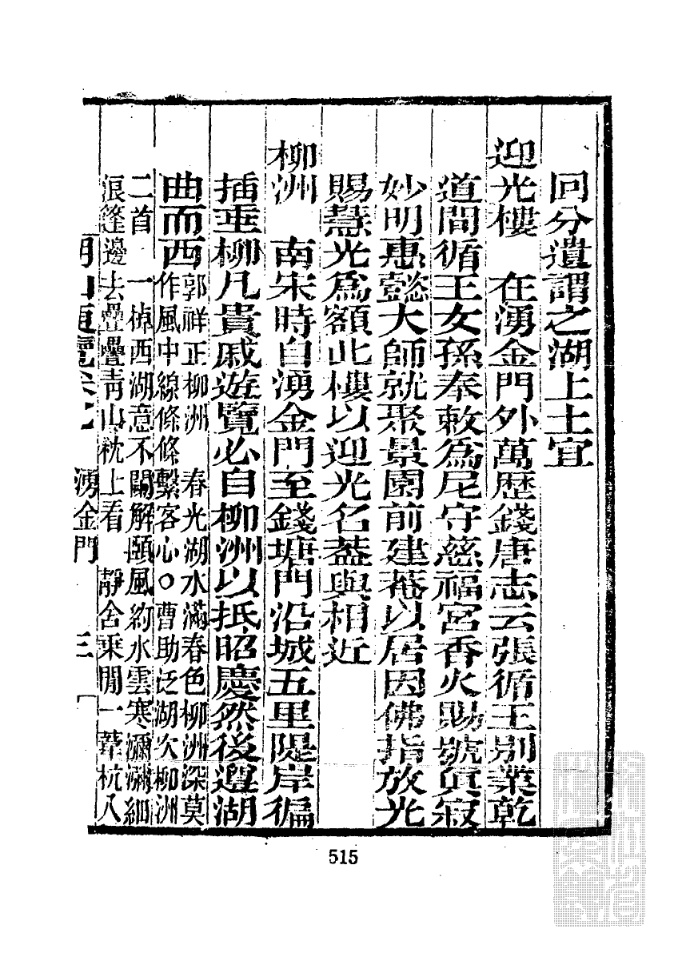 回分遺謂之湖上土宜
迎光樓　在湧金門外萬歷錢唐志云張循王別業乾
道間循王女孫奉敕爲尼守慈福宮香火賜號眞寂
妙明惠懿大師就聚景園前建菴以居因佛指放光
賜慧光爲額此樓以迎光名葢與相近
柳洲　南宋時自湧金門至錢塘門沿城五里隄岸徧
插垂柳凡貴戚遊覽必自柳洲以抵昭慶然後遵湖
曲而西
郭祥正柳洲　春光湖水滿春色柳洲深莫
作風中線條條繫客心○曹助泛湖次柳洲
二首　一棹西湖意不關解頤風約水雲寒瀰瀰細
浪篷邊去疊疊青山枕上看　靜舍乘閒一葦杭八
湖山便覽卷七　湧金門　三
515